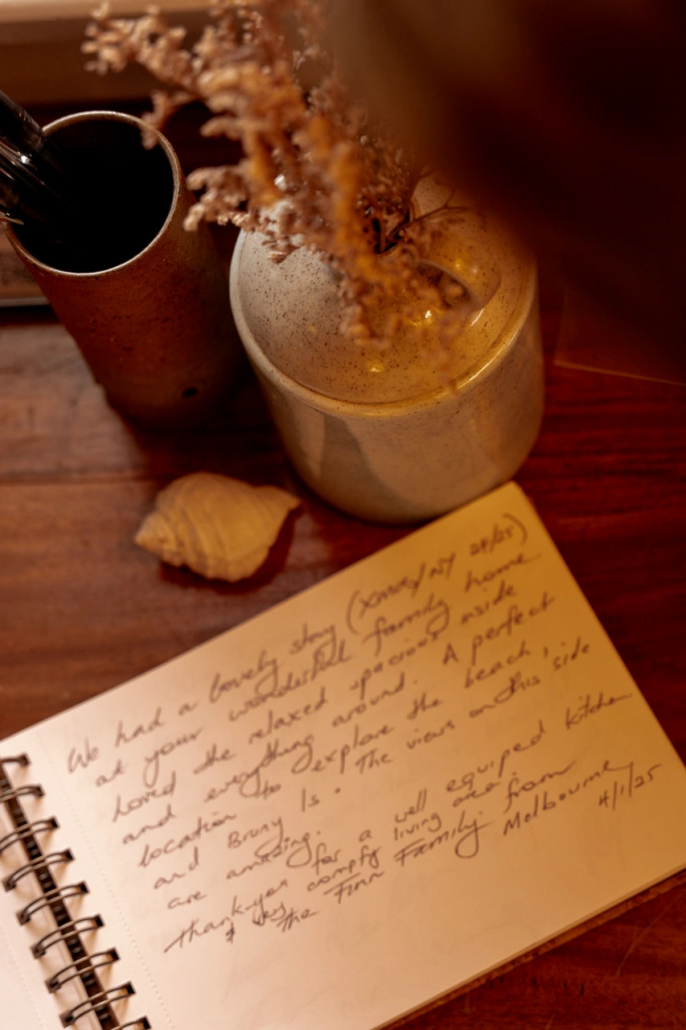 We had a lovely stay (Xmas/NY 24/25)
at your wonderful family home.
Loved the relaxed spacious inside
and everything around. A perfect
location to explore the beach,
and Bruny Is. The views on this side
are amazing.
Thank-you for a well equiped kitchen
& very comfy living area.
The Finn Family. from Melbourne
4/1/25